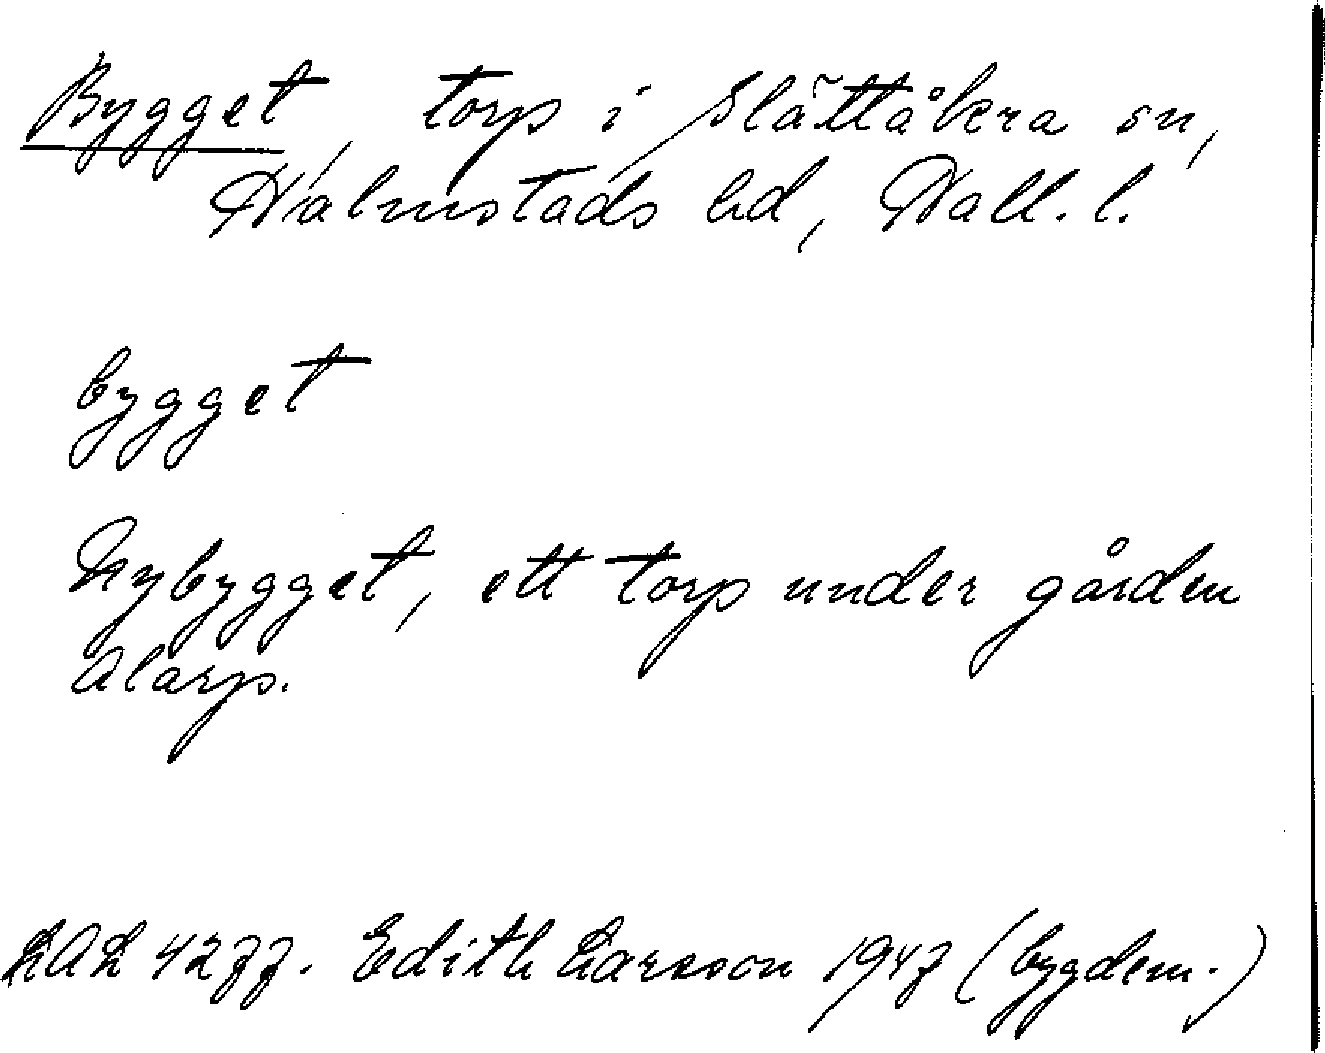 Bygget, torp i Slättåkra sn,
Halmstads hd, Hall. l.
bygget
Nybygget, ett torp under gården
Alarp.
LAL 4277. Edith Larsson 1947 (bygdem.)